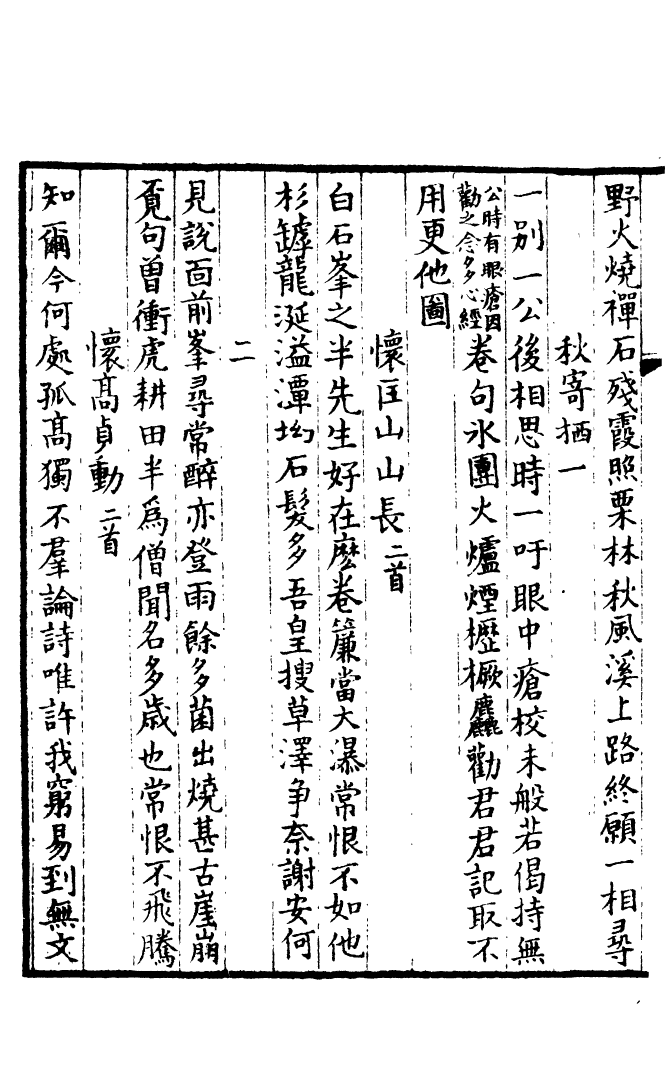 野火燒禪石殘霞照栗林秋風溪上路終願一相尋
秋寄栖一
一別一公後相思時一吁眼中瘡校未般若偈持無
公時有眼瘡因勸之念多心經卷句氷團火爐煙櫪橛麤勸君君記取不
用更他圖
懷匡山山長二首
白石峯之半先生好在麽卷簾當大瀑常恨不如他
杉罅龍涎溢潭坳石髮多吾皇搜草澤争奈謝安何
二
見說面前峯尋常醉亦登雨餘多菌出燒甚古崖崩
覔句曽衝虎耕田半爲僧聞名多歳也常恨不飛騰
懷髙貞動二首
知爾今何處孤髙獨不羣論詩唯許我窮易到無文